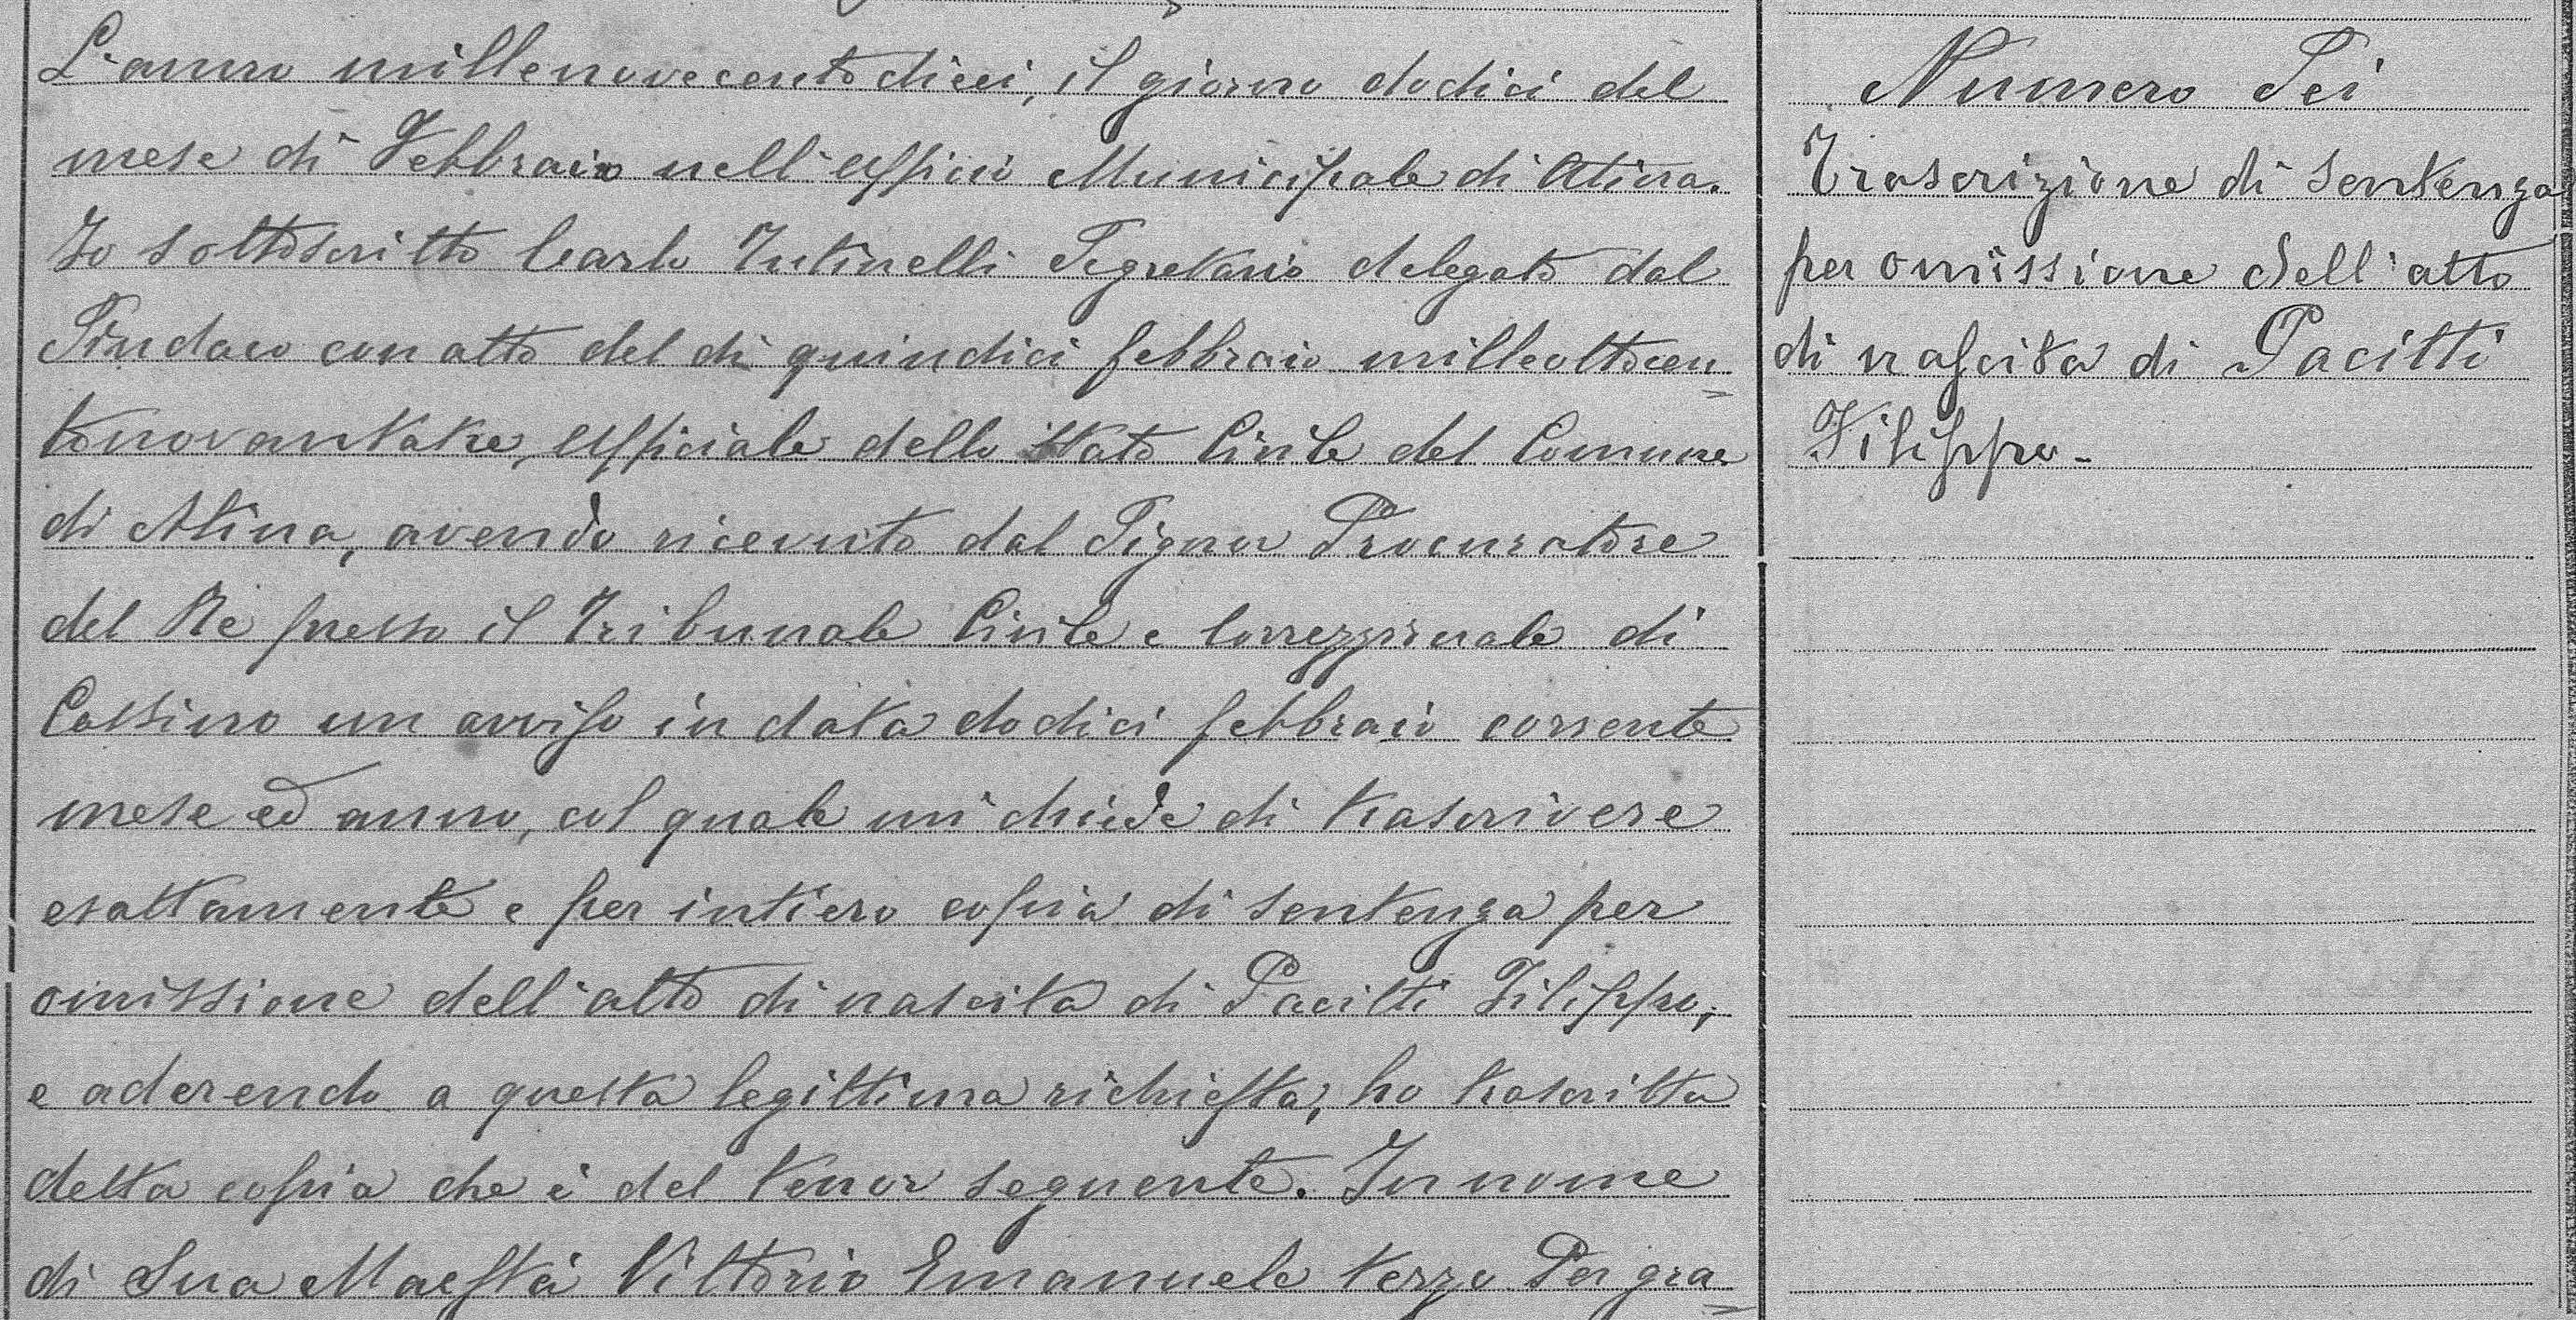 L'anno millenovecentodieci, il giorno dodici del
mese di Febbraio nell'Ufficio Municipale di Atina.
Io sottoscritto Carlo Tutinelli Segretario delegato dal
Sindaco con atto del di quindici febbraio milleottocen=
tonovantatre, Ufficiale dello Stato Civile del Comune
di Atina, avendo ricevuto dal Signor Procuratore
del Re presso il Tribunale Civile e Correzzionale di
Cassino un avviso in data dodici febbraio corrente
mese ed anno, col quale mi chiede di trascrivere
esattamente e per intiero copia di sentenza per
omissione dell'atto di nascita di Pacitti Filippo,
e aderendo a questa legittima richiesta, ho trascritta
detta copia che è del tenor seguente. In nome
di Sua Maestà Vittorio Emanuele terzo Per gra=
Numero Sei
Trascrizione di sentenza
per omissione dell'atto
di nascita di Pacitti
Filippo-